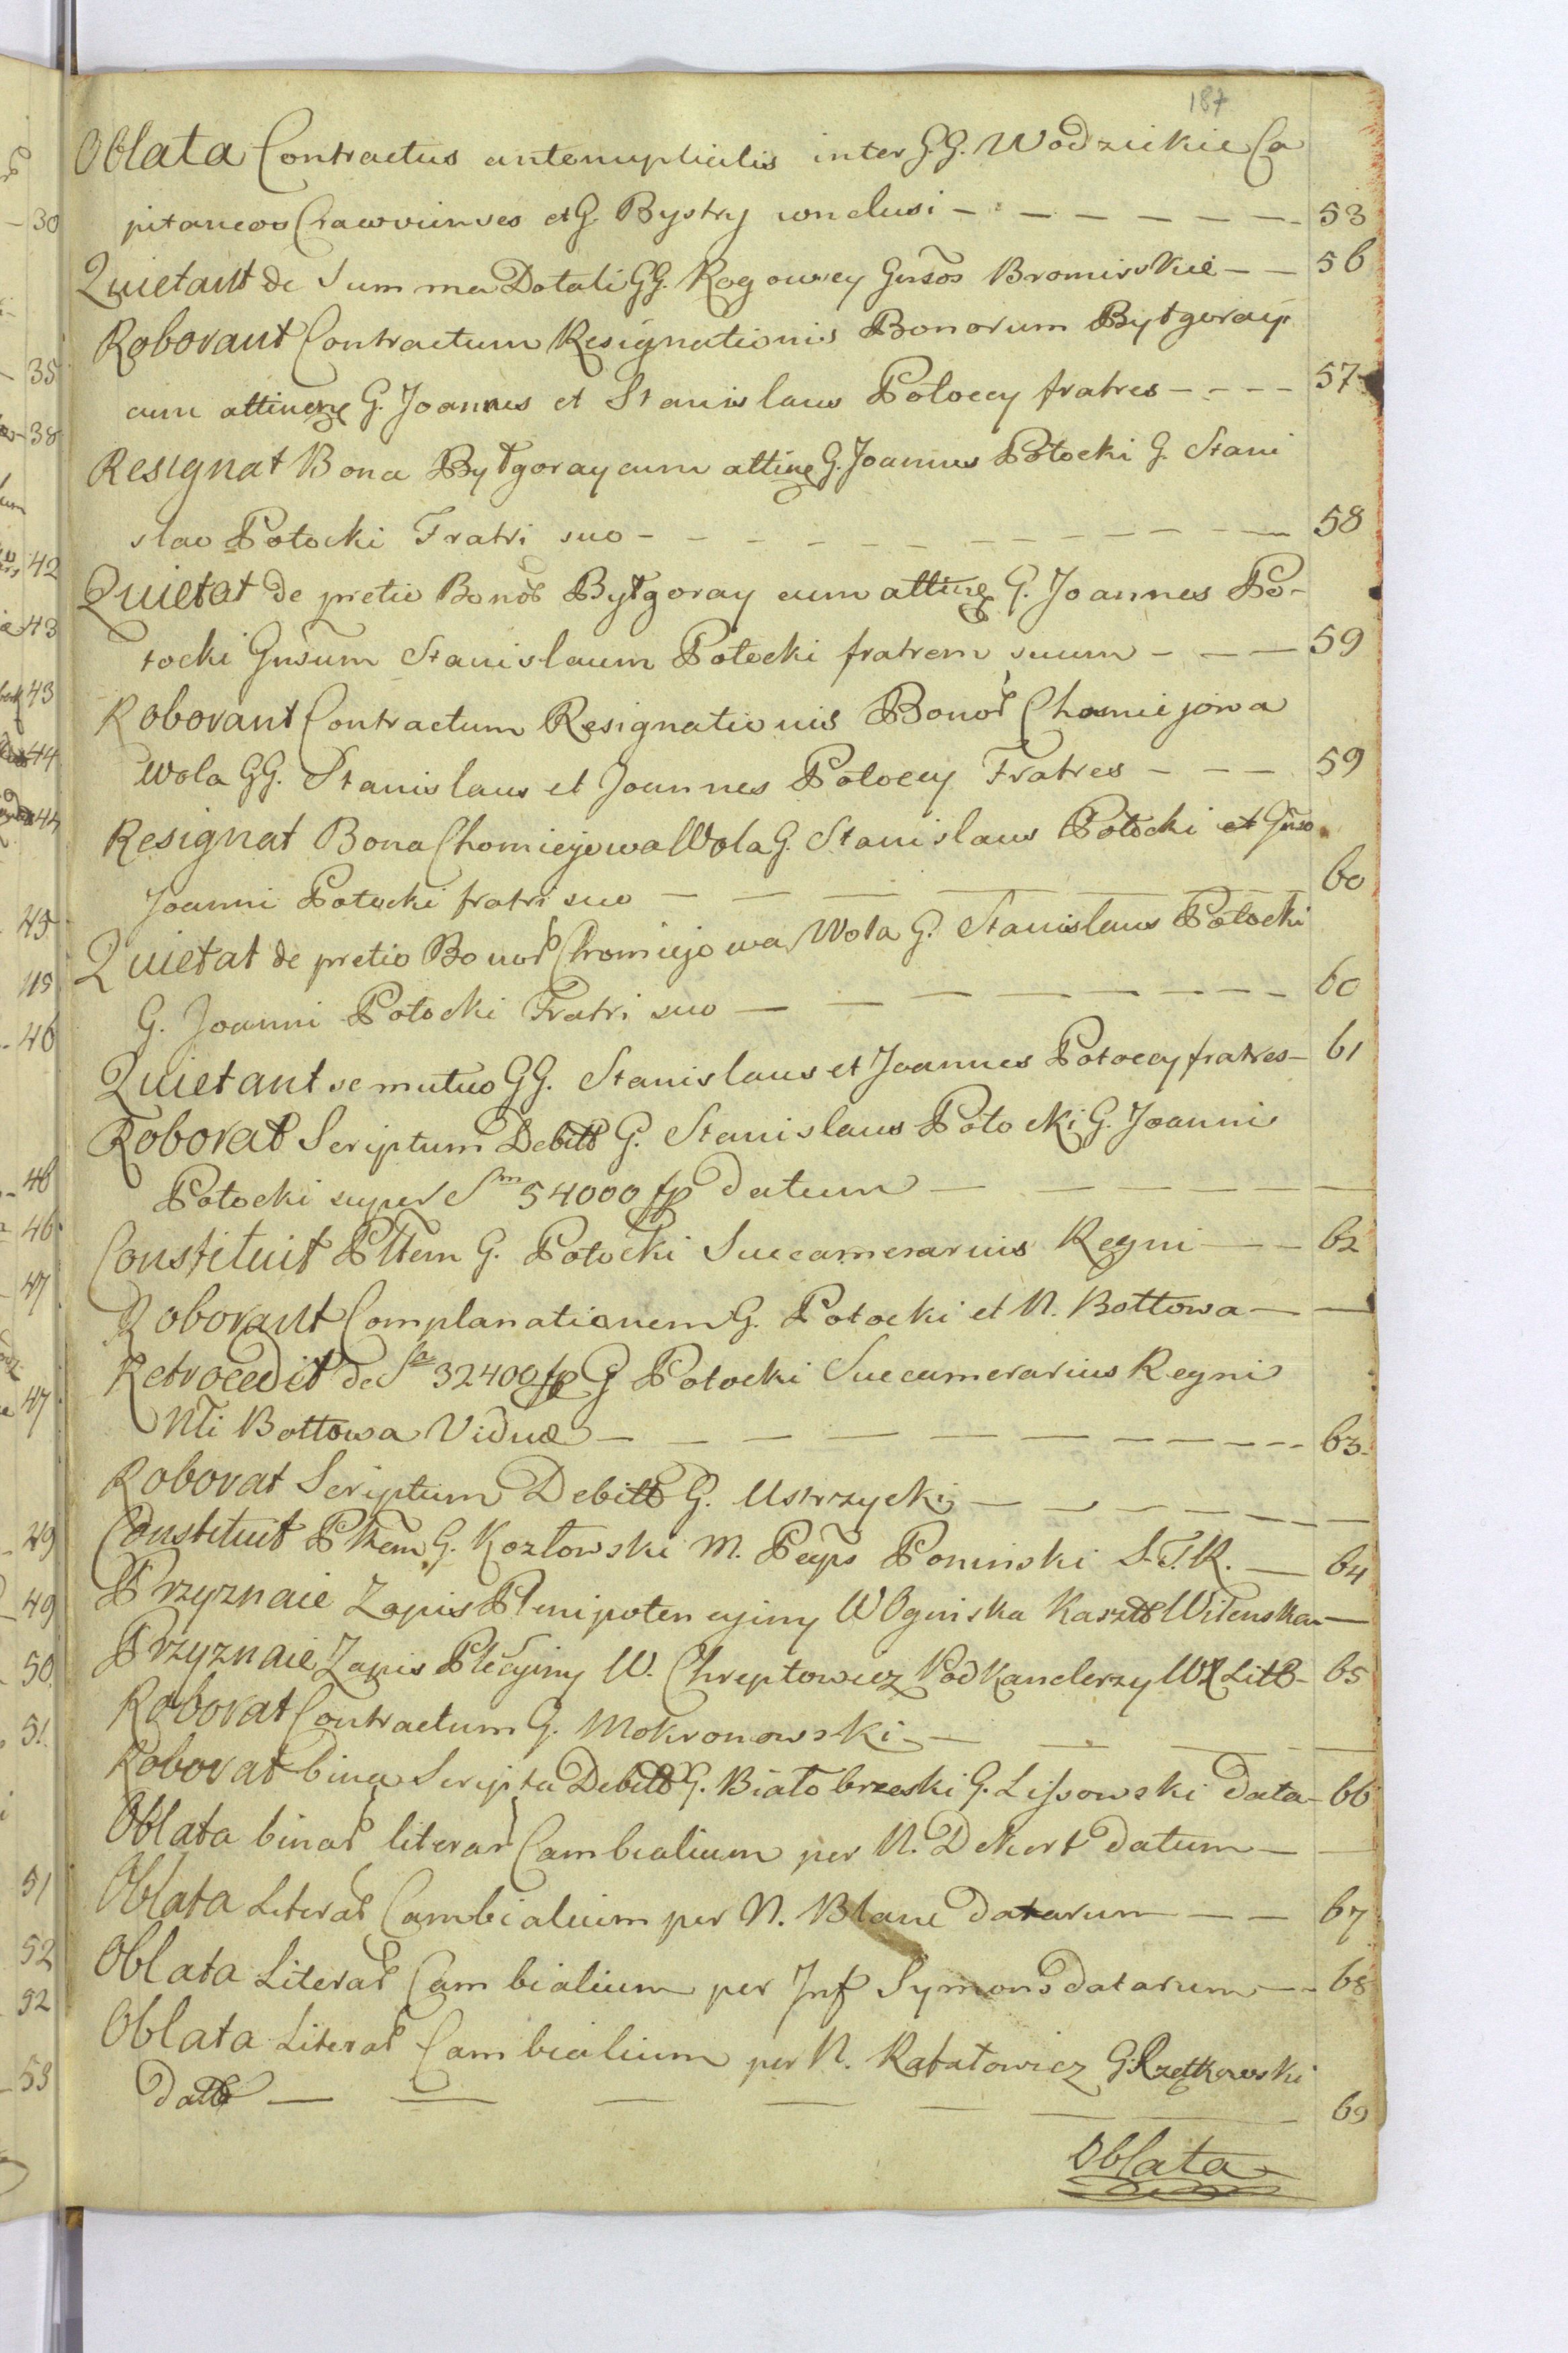 187
Oblata Contractus antenuptialis inter G.G. Wodzickie Ca
pitaneos Cracovienses et G. Bystry conclusi - - - - - - - 53
Quietant de Summa Dotali GG. Rogowscy Gnsos Bromirskie - - 56
Roborant Contractum Resignationis Bonorum Bytgoray
cum attinen G. Joannes et Stanislaus Potoccy fratres - - - - 57
Resignat Bona Bytgoray cum attinen G. Joannes Potocki G. Stani
slao Potocki Fratri suo - - - - - - - - - - - - 58
Quietat de pretio Bonor Bytgoray cum attinen G. Joannes Po-
tocki Gnsum Stanislaum Potocki fratrem suum - - - 59
Roborant Contractum Resignationis Bonor Chomiejowa
Wola GG. Stanislaus et Joannes Potoccy Fratres - - - 59
Resignat Bona Chomiejowa Wola G. Stanislaus Potocki et Gnso
Joanni Potocki fratri suo - - - - - - - - 60
Quietat de pretio Bonor Chomiejowa Wola G. Stanislaus Potocki
G. Joanni Potocki Fratri suo - - - - - - - - - 60
Quietant se mutuo GG. Stanislaus et Joannes Potoccy fratres - 61
Roborat Scriptum Debiti G. Stanislaus Potocki G. Joanni
Potocki super Sm 54000 fp datum - - - - - - -
Constituit Pltem G. Potocki Succamerarius Regni - - - 62
Roborant Complanationem G. Potocki et N. Bottowa - -
Retrocedit de Sa 32400 fp G Potocki Succamerarius Regni
Nli Bottowa Viduæ - - - - - - - - - - 63
Roborat Scriptum Debiti G. Ustrzycki - - - - - - -
Constituit Pltem G. Kozłowski M. Pcyps Poninski S.T.R. - 64
Przyznaie Zapis Plenipotencyiny W Oginska Kasztt Wilenska -
Przyznaie Zapis Plecyiny W. Chreptowicz Podkanclerzy WX Litt - 65
Roborat Contractum G. Mokronowski - - - - - -
Roborat bina Scripta Debiti G. Białobrzeski G. Lissowski data - 66
Oblata binar literar Cambialium per N. Dekert datum - -
Oblata Literar Cambialium per N. Blanc datarum - - - 67
Oblata Literar Cambialium per Inf Symons datarum - - 68
Oblata Literar Cambialium per N. Rafałowicz G. Rzętkowski
datt - - - - - - - 69
Oblata
30
35
38
42
43
43
44
44
45
45
46
46
46
47
47
49
49
50
51
51
52
52
53